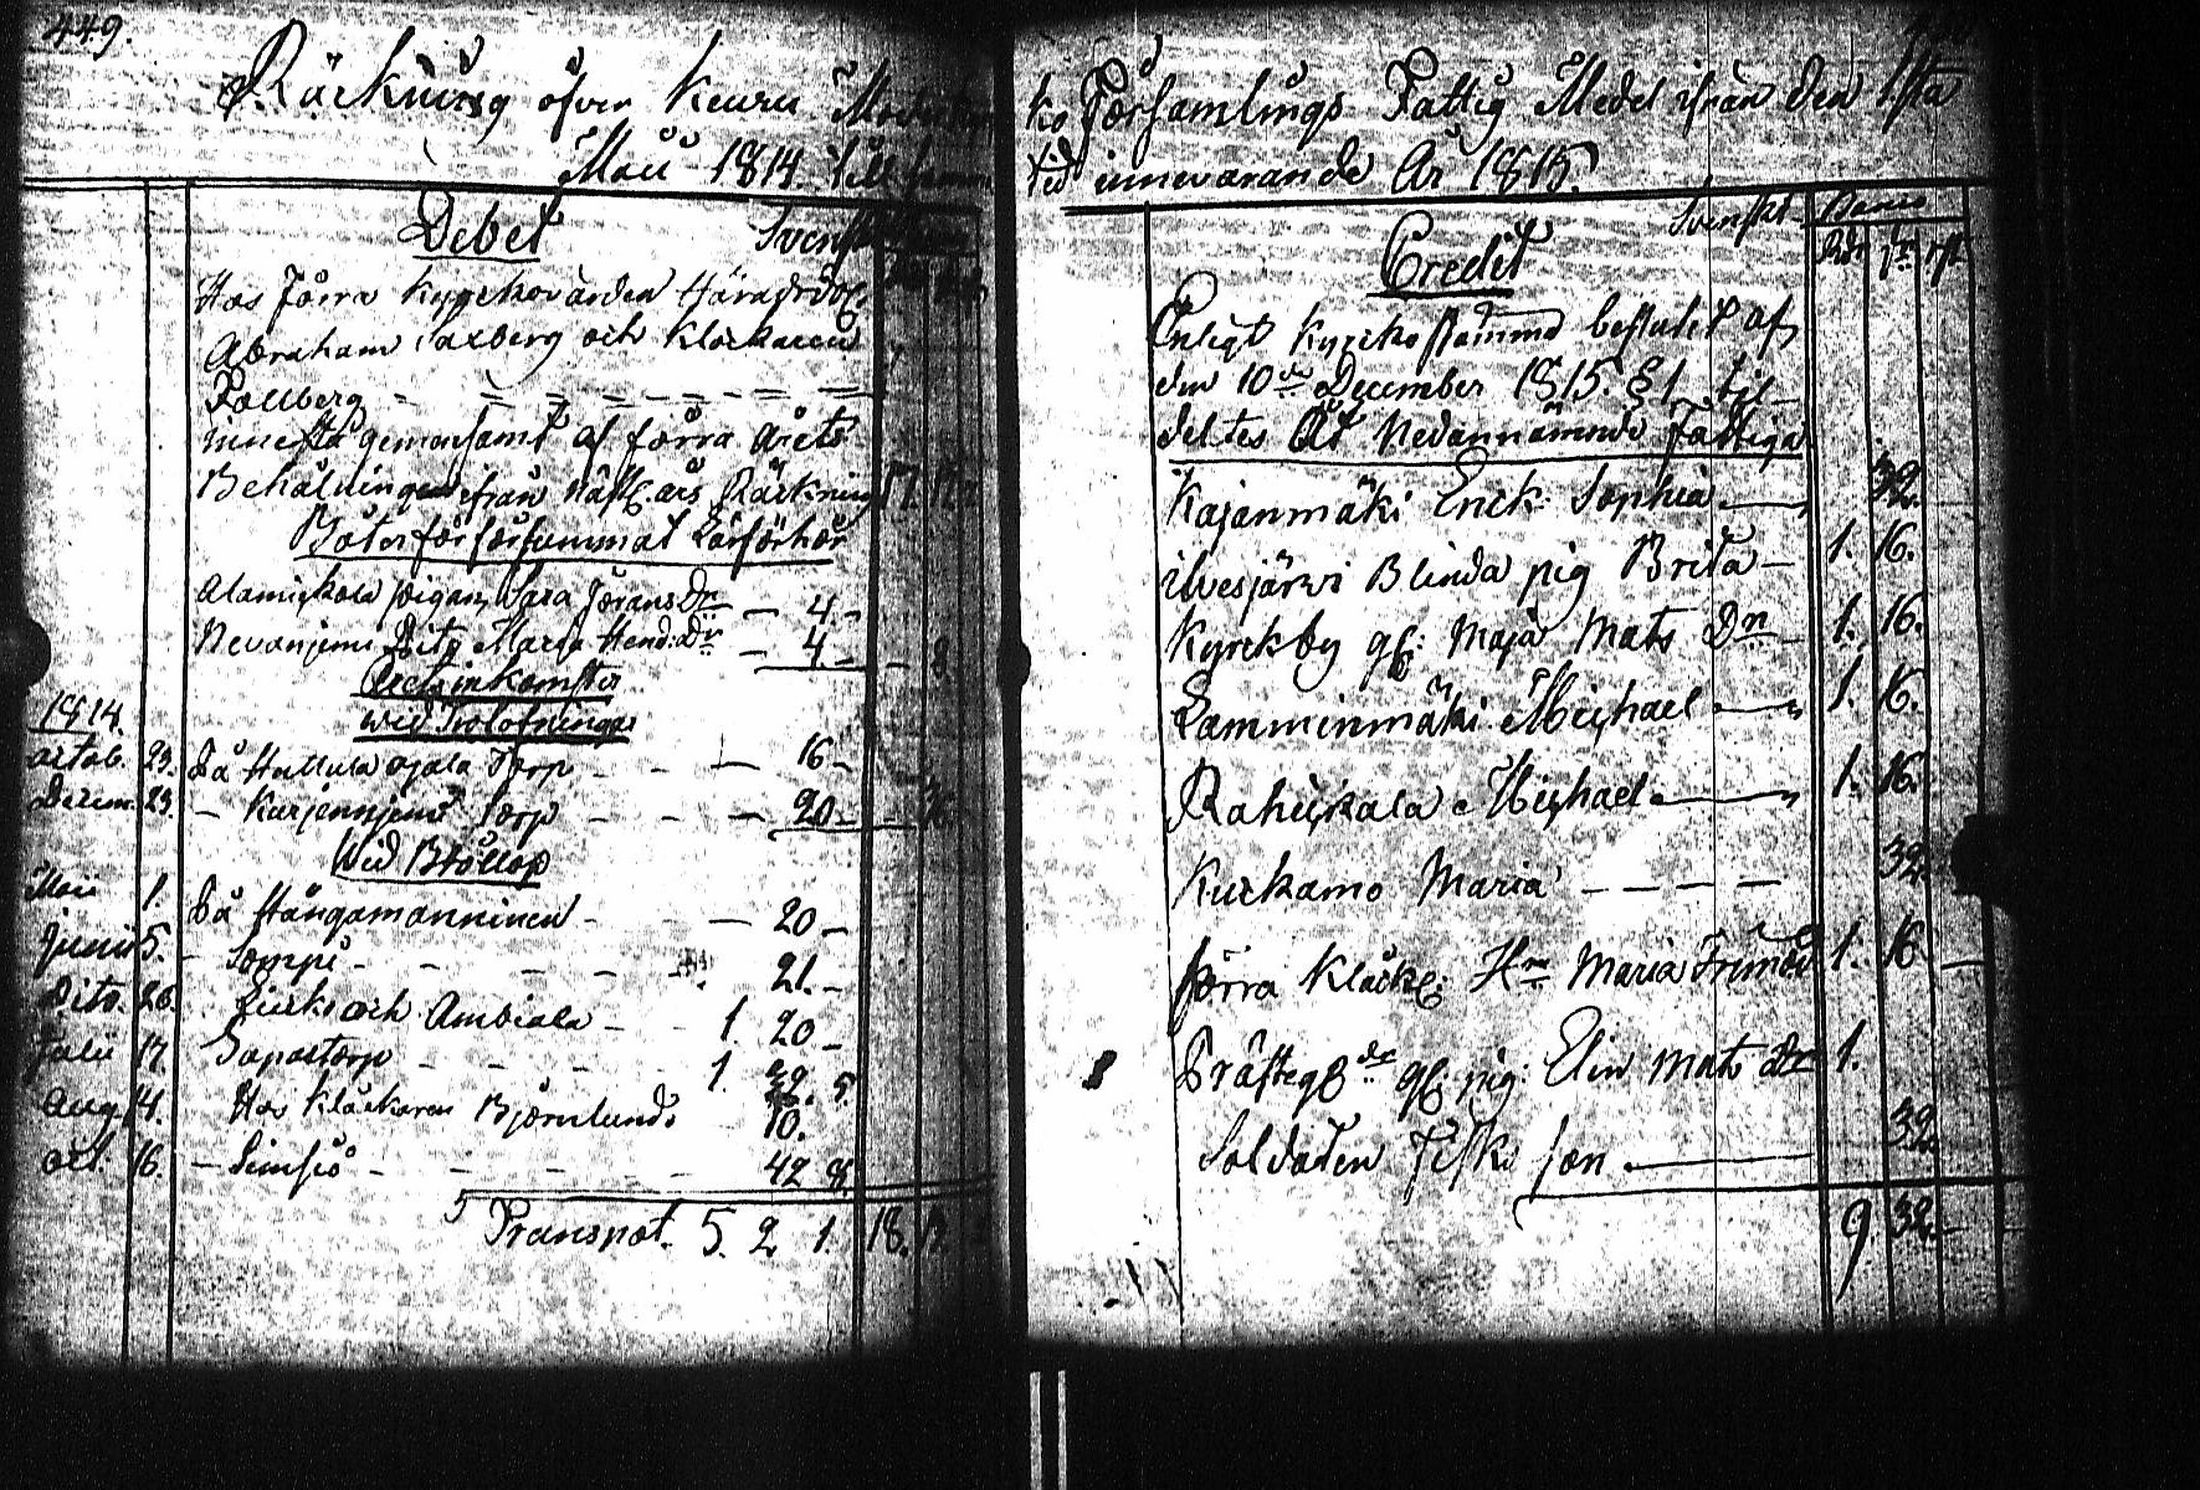 449.
Räkning öfver Keuru Moderkyr
Maii 1814. till samma
Debet Svenskt
Hos förra Kyrckovärden Häradsdom.
Abraham Saxberg och Klockaren
Pallberg
innestå gemensamt af förra årets
Behålningen ifrån näst. års Räkning 17.
Böter för försummat Läsförhör
Alamickola pigan Sara Jörans Dr 4.
Nevanjemi Dito Maria Hend: Dr 4 8.
Årets inkomster
wid Trolofningar
1814.
octob. 23. På Hallula ojala Torp 16
Decem. 23. Karjenniemi Torp 20
Wid Bröllop
Maii 1. På Hångamanninen 20
Junii 5. Sompi 21.
Dito. 26. Liuks och Ambiala 1. 20
Julii 17. Sapastorp 1. 32. 5.
Aug. 14. Hos Klåckaren Björnlunds 10.
oct. 16. Simsiö 42 8
Transpot. 5. 2 1. 18. 17.
ko Församlings Fattig Medel ifrån den 1sta
tid innevarande År 1815.
Svenskt Banco
Credit Rdr
Enligt Kyrcko stämmo beslutet af
den 10de December 1815. §1 til
deltes åt Nedannämnde Fattiga
Kajanmäki Erick Sophia 32.
ilvesjärvi Blinda pig Brita 1. 16.
Kyrckby gl: Maja Mats Dr 1. 16.
Lamminmäki Michael 1. 16.
Rahickala Michael 1. 16.
Kurkamo Maria 32.
förra Klåck: H Maria 1. 16
Prästeg de gl: pig: Elin Mats dr 1.
Soldaten son 32.
9. 32.